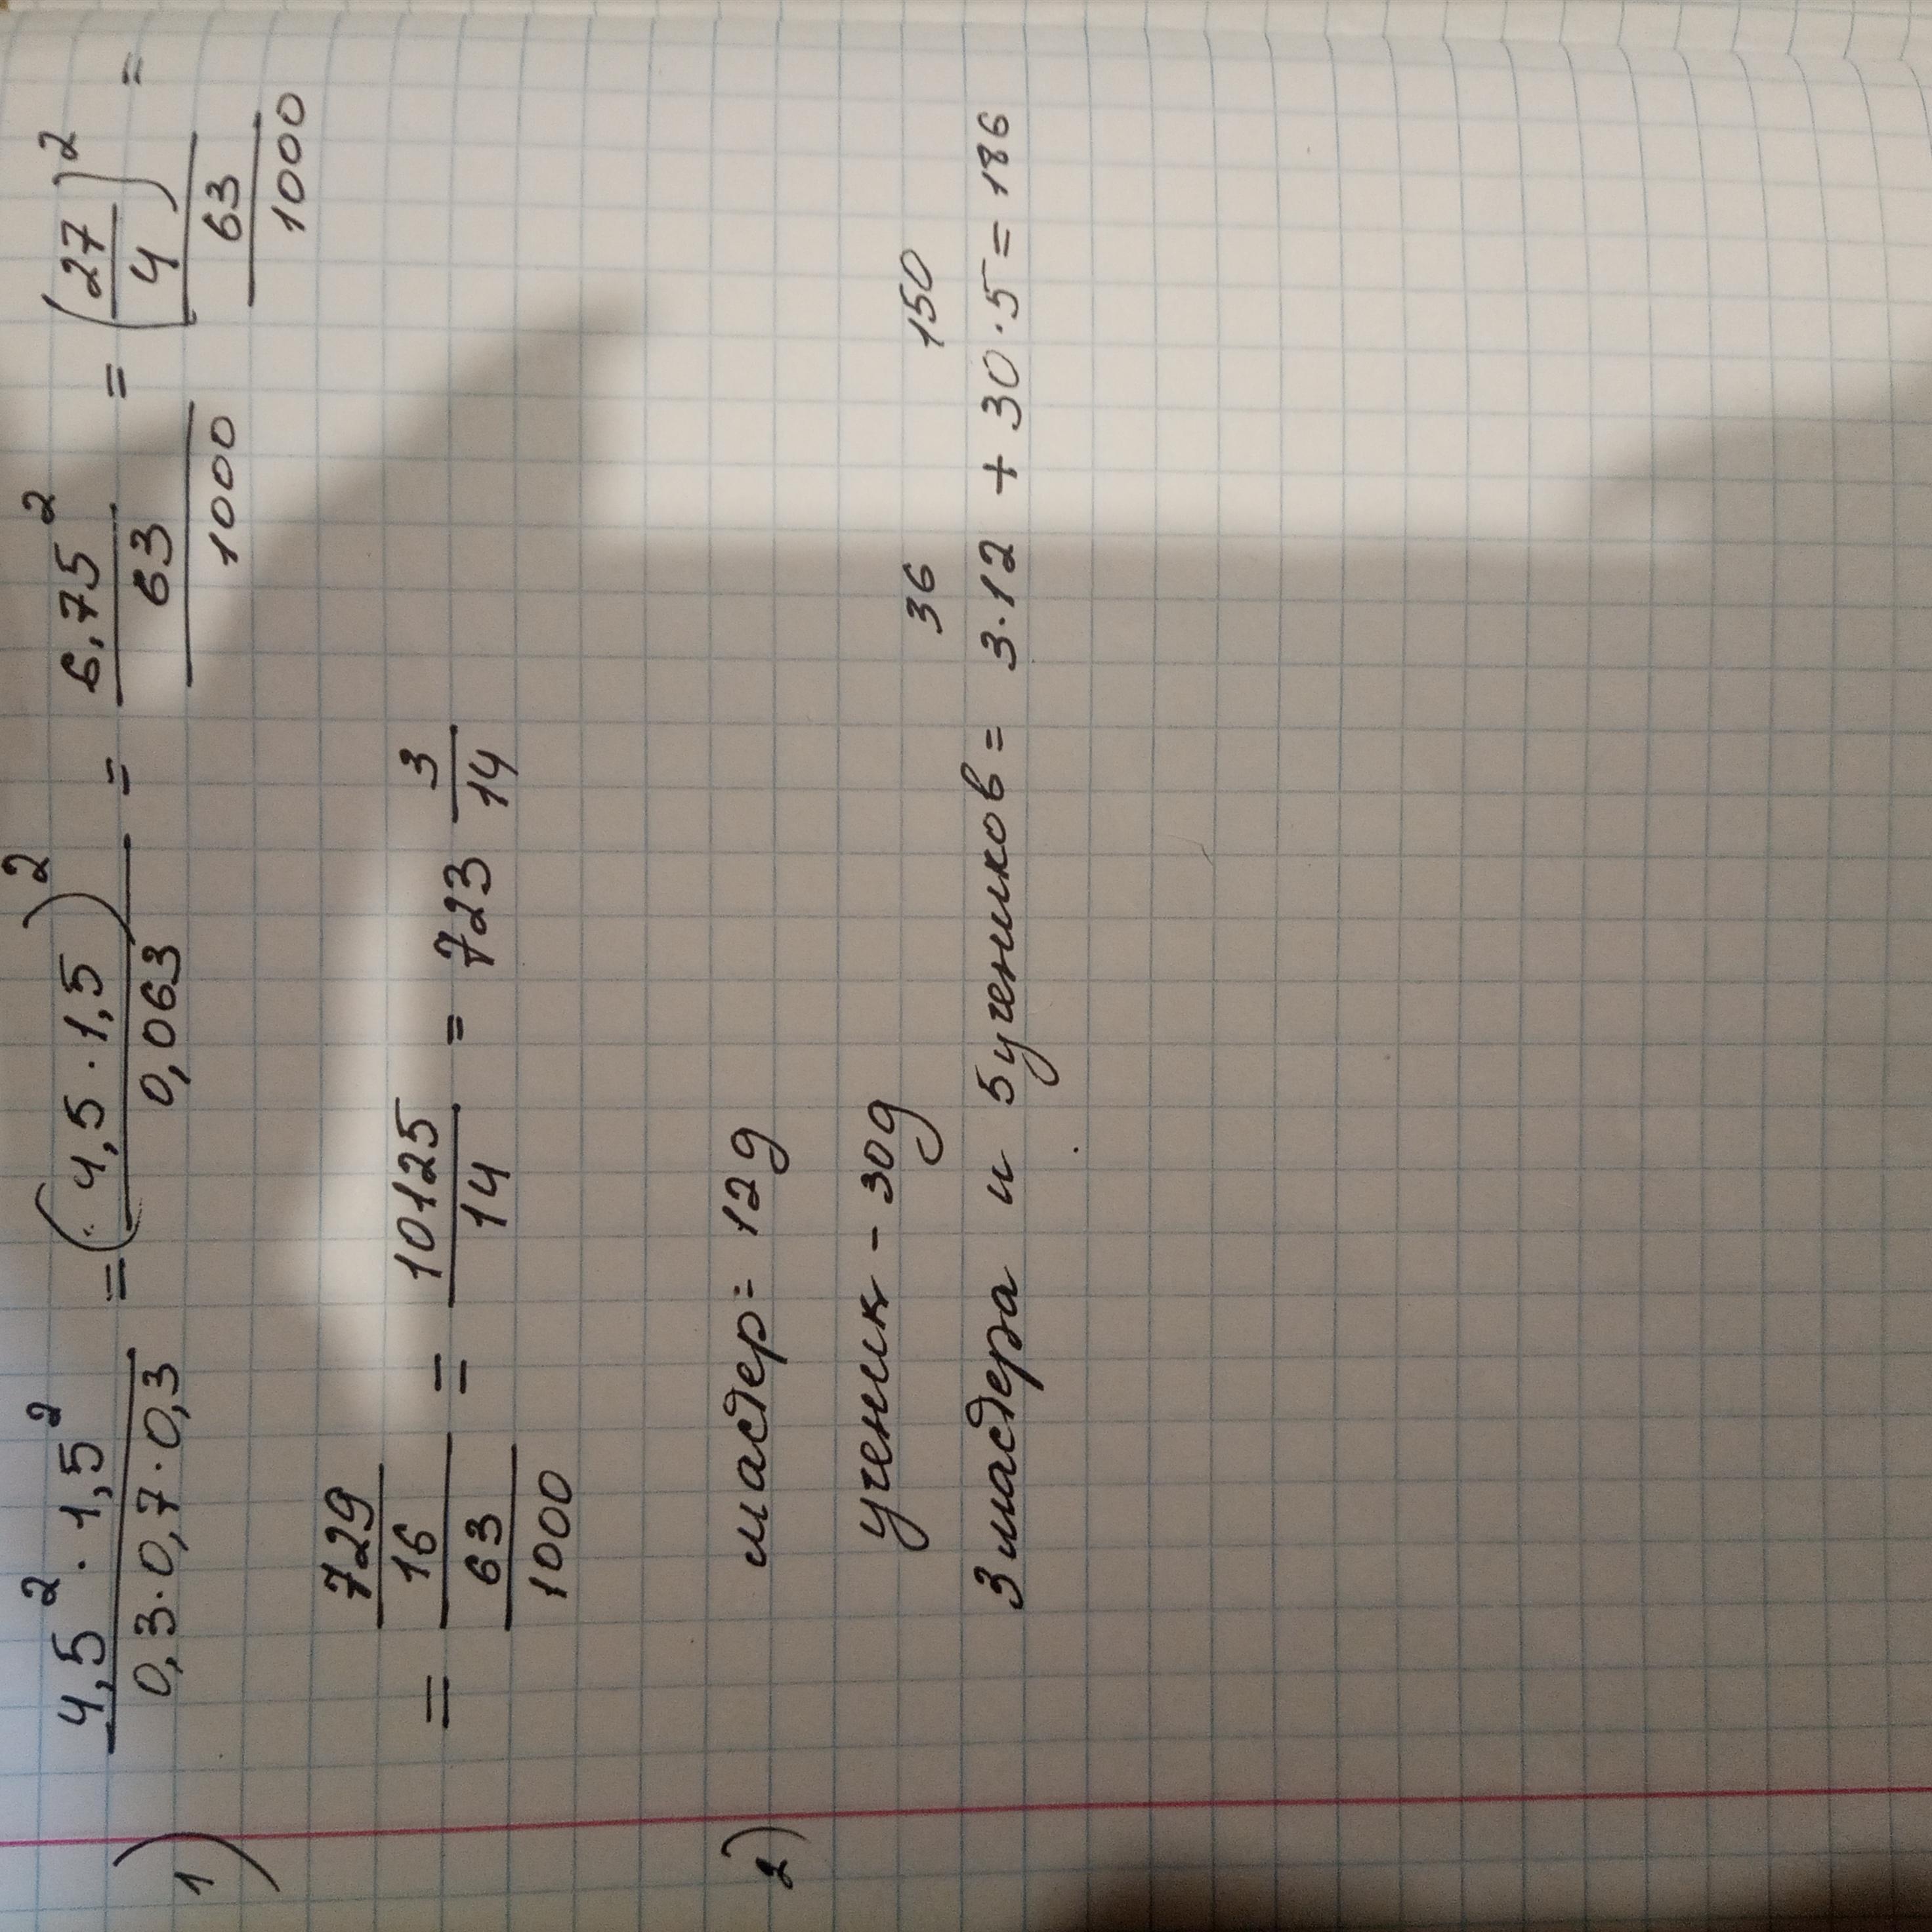 1) 4,5² · 1,5² / 0,3 · 0,7 · 0,3 = (4,5 · 1,5)² / 0,063 = 6,75² / 63 / 1000 = (27/4)² / 63 / 1000 =
= 729 / 16 / 63 / 1000 = 10125 / 14 = 723 3/14
2) мастер = 12 д
ученик - 30д
36 150
3 мастера и 5 учеников = 3·12 + 30·5 = 186